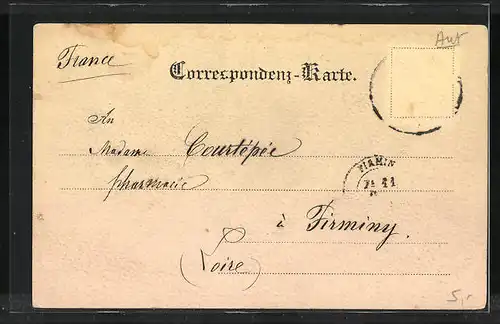 Aut
France
Correspondenz-Karte.
An
Madame Courtépée
pharmacie
FIRMIN
7E 11
à Firminy.
(Loire)
5,-